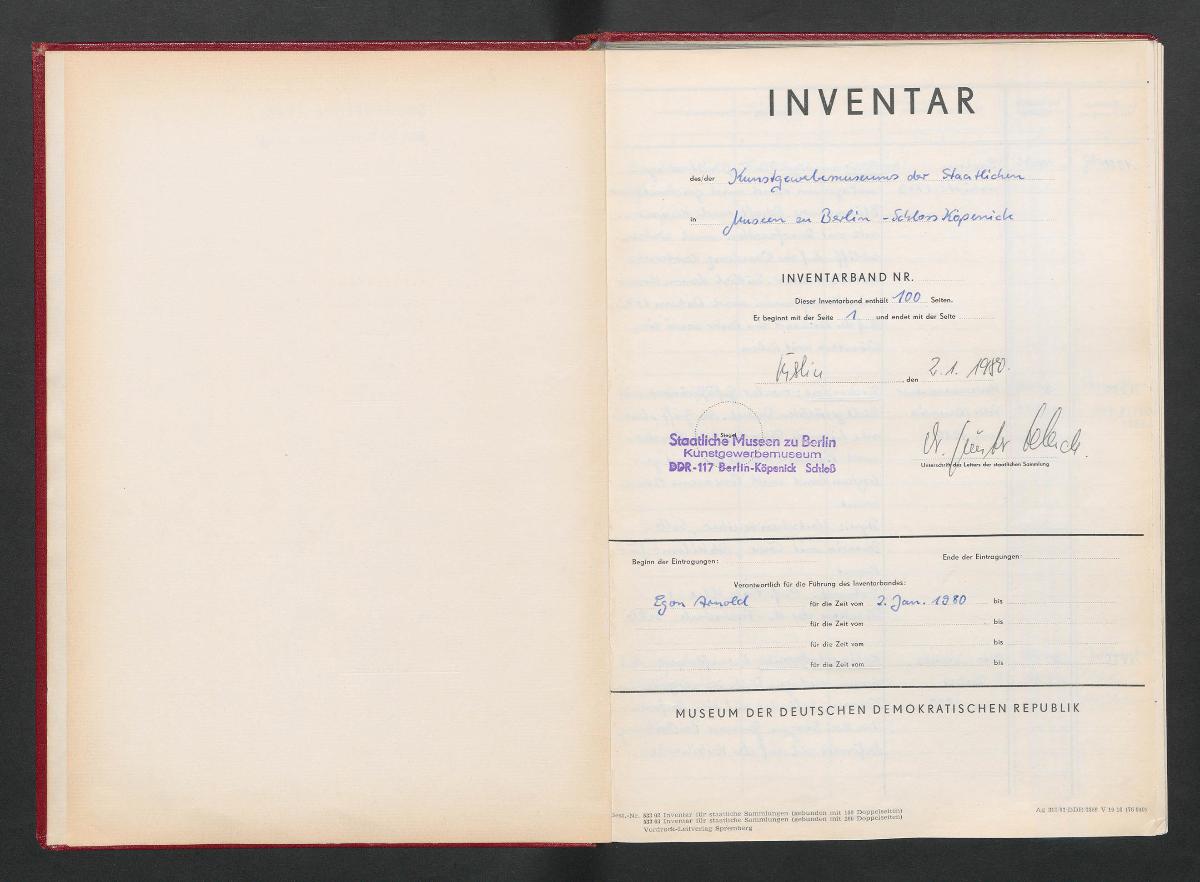 INVENTAR
des/der Kunstgewerbemuseums der Staatlichen
in Museen zu Berlin - Schloss Köpenick
INVENTARBAND NR.
Dieser Inventarband enthält 100 Seiten.
Er beginnt mit der Seite 1 und endet mit der Seite
, den 2.1. 1980.
Siegel
Staatliche Museen zu Berlin
Kunstgewerbemuseum
DDR-117 Berlin-Köpenick Schloß
Dr. Günter
Unterschrift des Leiters der staatlichen Sammlung
Beginn der Eintragungen:
Ende der Eintragungen:
Verantwortlich für die Führung des Inventarbandes:
Egon Arnold für die Zeit vom 2. Jan. 1980 bis
für die Zeit vom bis
für die Zeit vom bis
für die Zeit vom bis
MUSEUM DER DEUTSCHEN DEMOKRATISCHEN REPUBLIK
Best.-Nr. 532 02 Inventar für staatliche Sammlungen (gebunden mit 100 Doppelseiten)
532 03 Inventar für staatliche Sammlungen (gebunden mit 200 Doppelseiten)
Vordruck-Leitverlag Spremberg